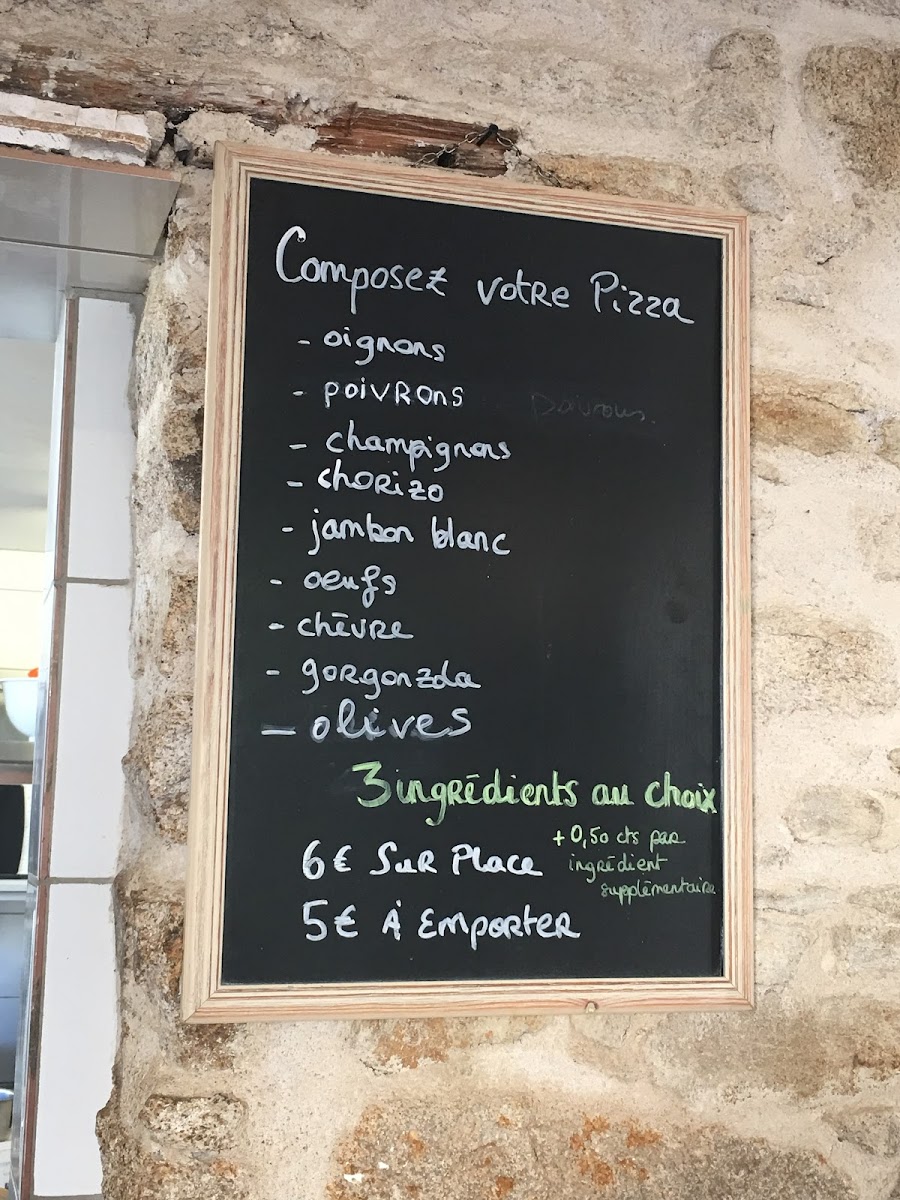 Composez votre Pizza
- oignons
- poivrons
- champignons
- chorizo
- jambon blanc
- oeufs
- chèvre
- gorgonzola
- olives
3 ingrédients au choix
+ 0,50 cts par
ingrédient
supplémentaire
6€ Sur Place
5€ À Emporter